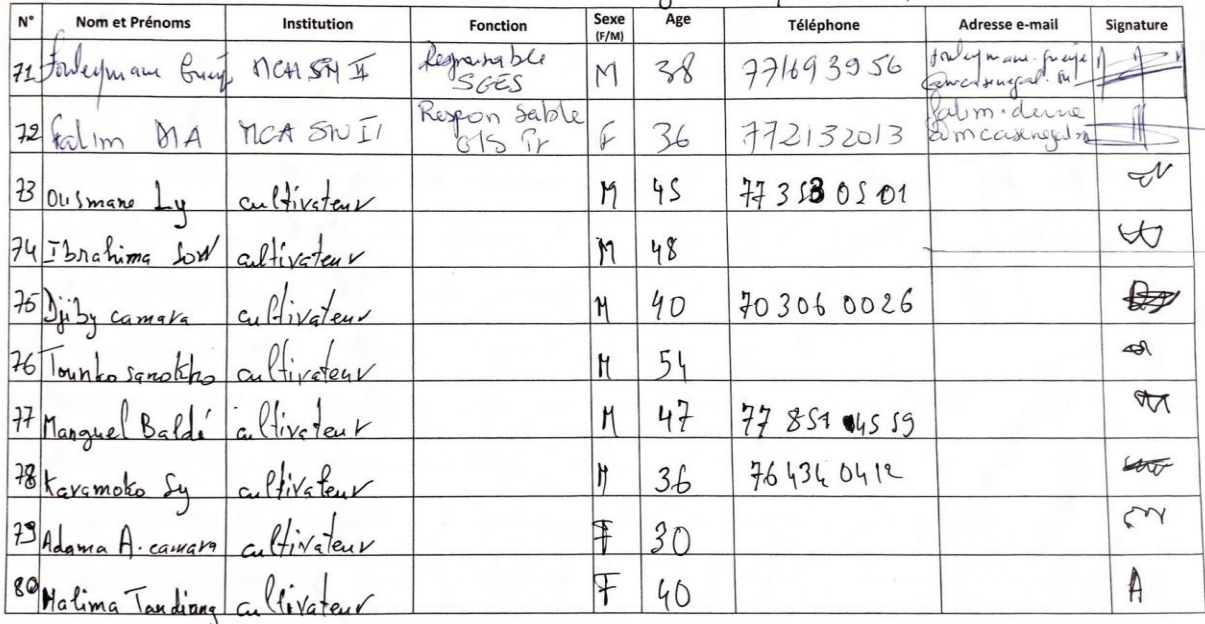 N° Nom et Prénoms Institution Fonction Sexe (F/M) Age Téléphone Adresse e-mail Signature
71 MCA SN II Responsable SGES M 38 771693956
72 Falim DIA MCA SN II Responsable F 36 772132013
73 Ousmane Ly cultivateur M 45 77 353 05 01
74 Ibrahima Sow cultivateur M 48
75 Djiby camara cultivateur M 40 70 306 00 26
76 Tounko sanokho cultivateur M 54
77 Manguel Baldé cultivateur M 47 77 851 45 59
78 Karamoko Sy cultivateur M 36 76 434 04 12
79 Adama A. camara cultivateur F 30
80 Halima Tandiang cultivateur F 40 A